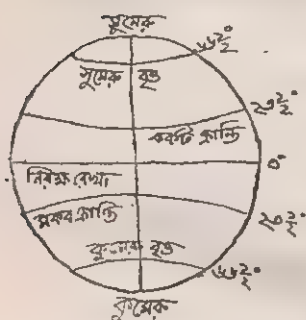 সুমেরু
৬৬ ১/২°
সুমেরু বৃত্ত
২৩ ১/২°
কর্কট ক্রান্তি
০°
নিরক্ষ রেখা
মকর ক্রান্তি
২৩ ১/২°
কুমেরু বৃত্ত
৬৬ ১/২°
কুমেরু